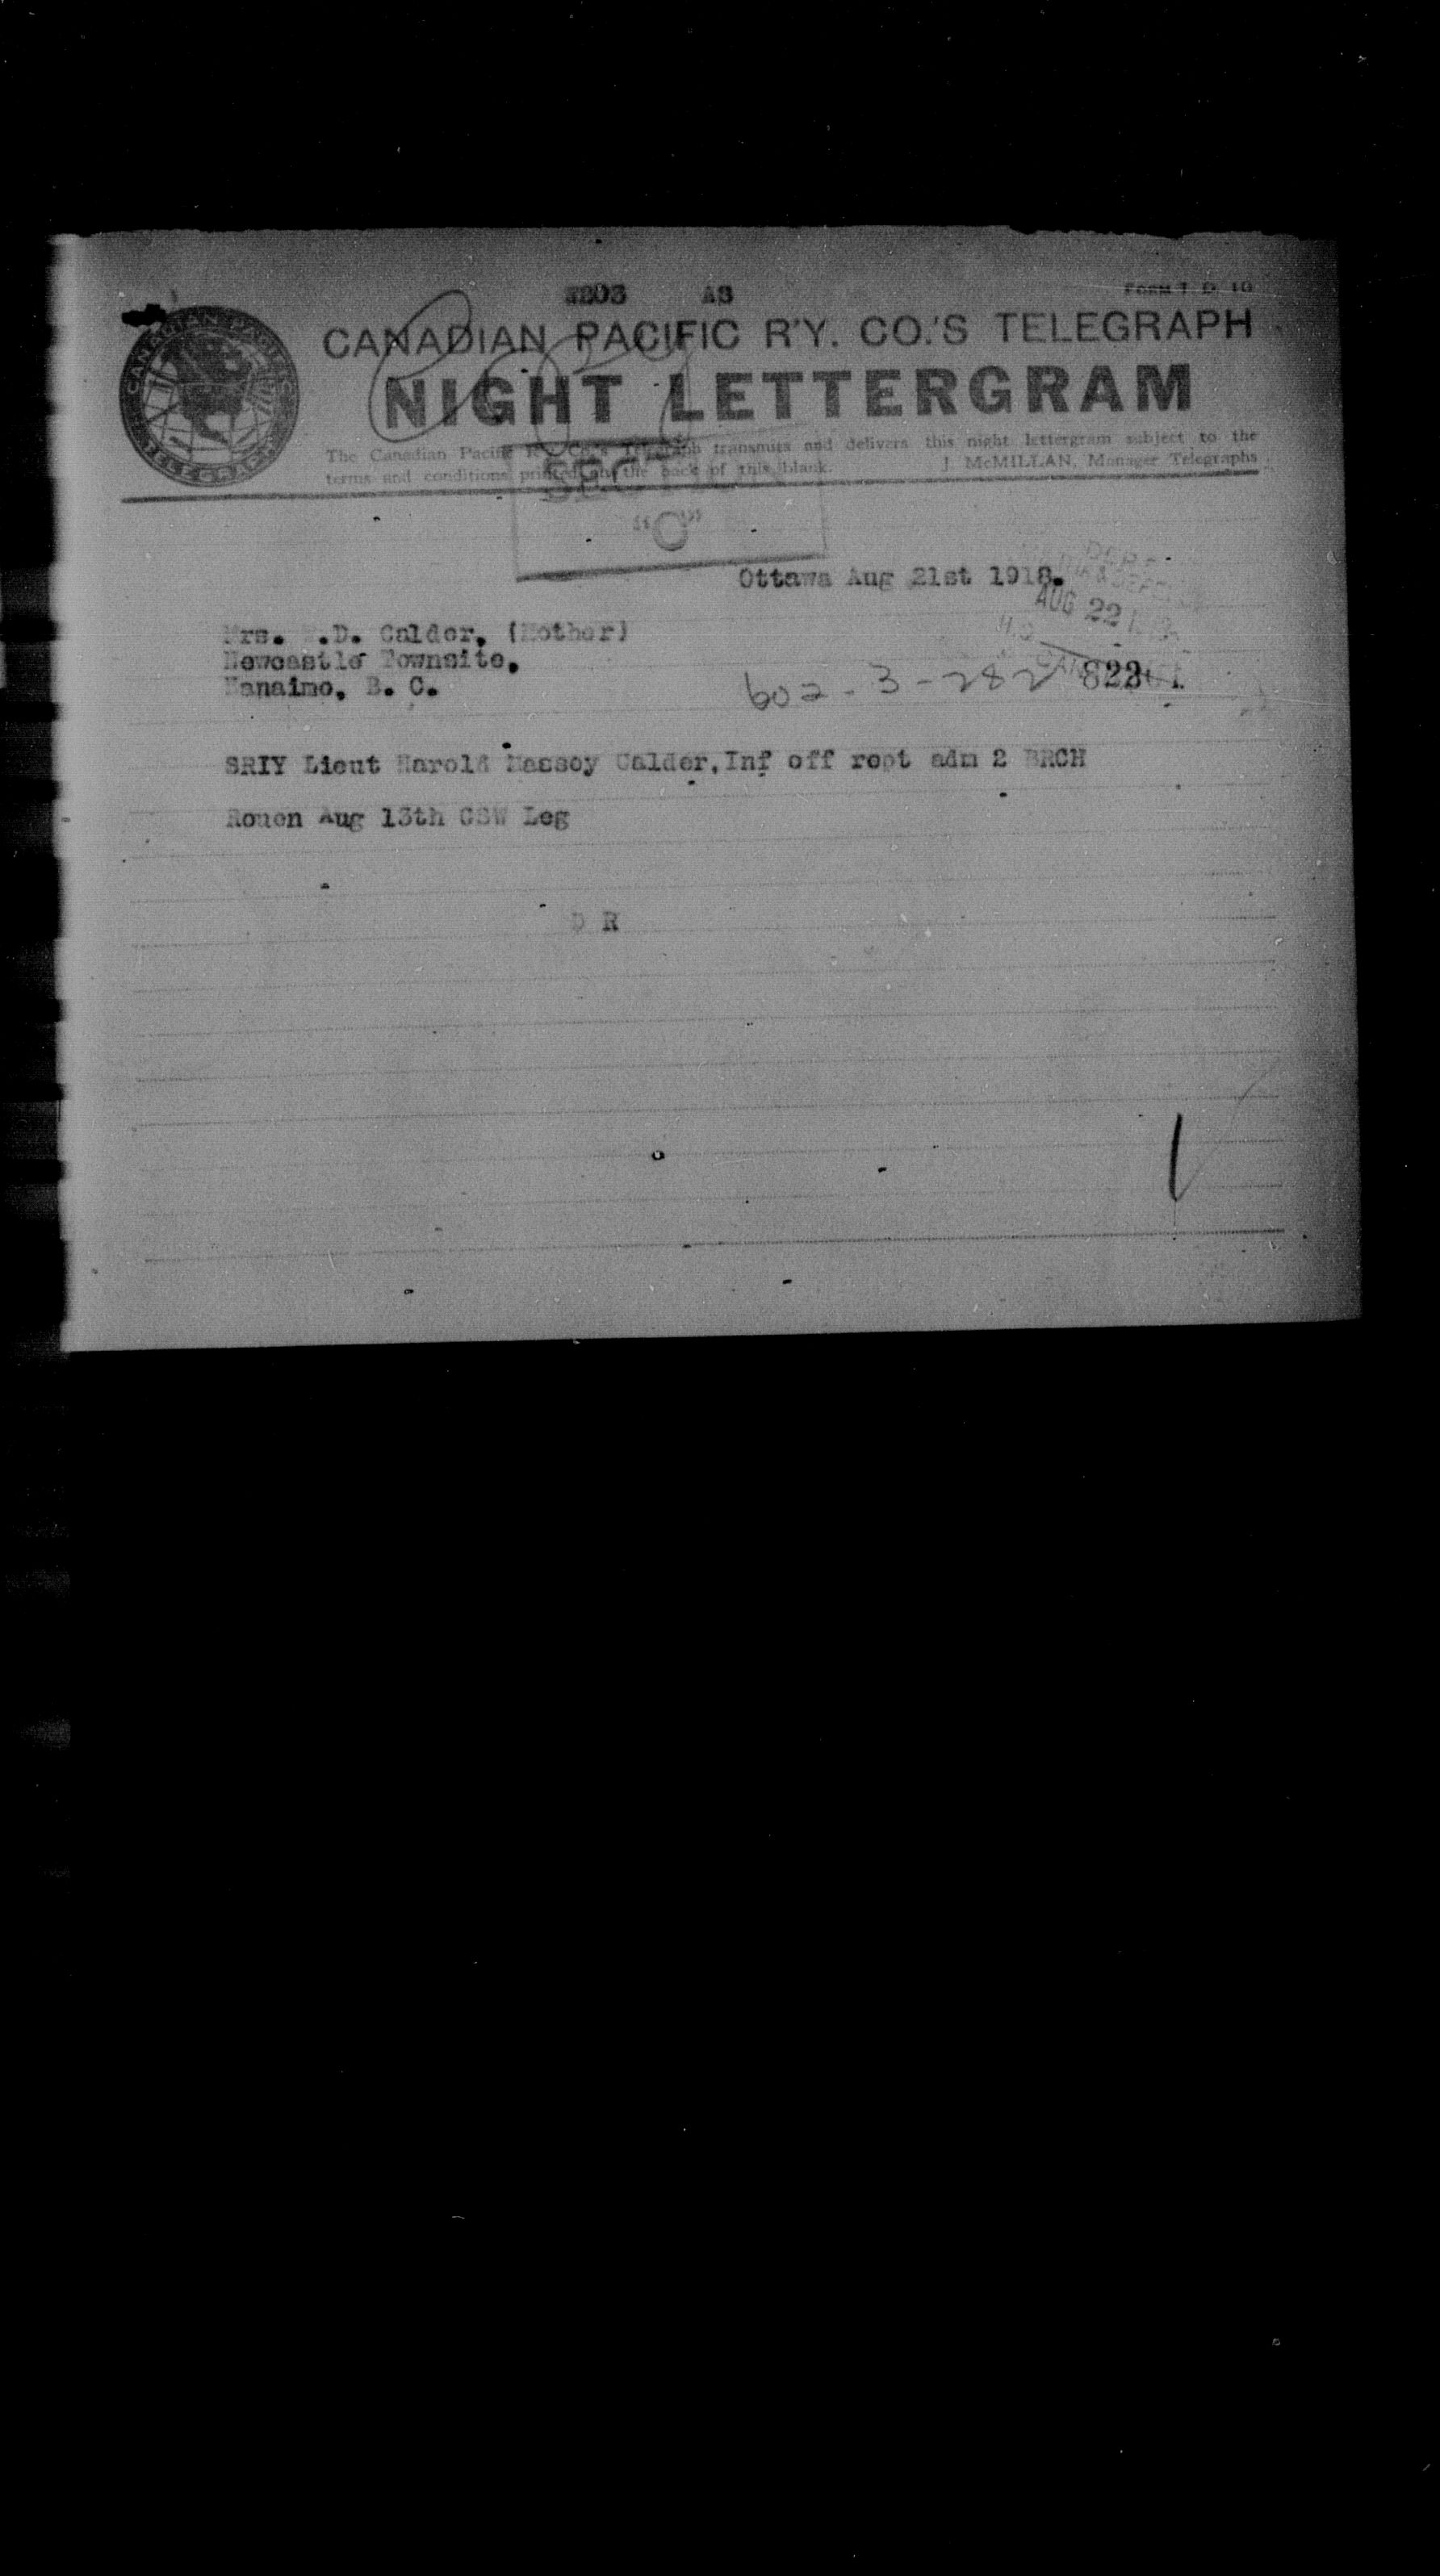 A8
FORM T. D. 10
CANADIAN PACIFIC R'Y. CO.'S TELEGRAPH
NIGHT LETTERGRAM
The Canadian Pacific R'y. Co.'s Telegraph transmits and delivers this night lettergram subject to the
terms and conditions printed on the back of this blank. J. McMILLAN, Manager Telegraphs
SECTION
"C"
Ottawa Aug 21st 1918.
AUG 22
Mrs. .D. Calder, (Mother)
Newcastle Townsite,
Nanaimo, B. C.
602-3-282
SRIY Lieut Harold Massey Calder, Inf off rept adm 2 BRCH
Rouen Aug 13th GSW Leg
D R